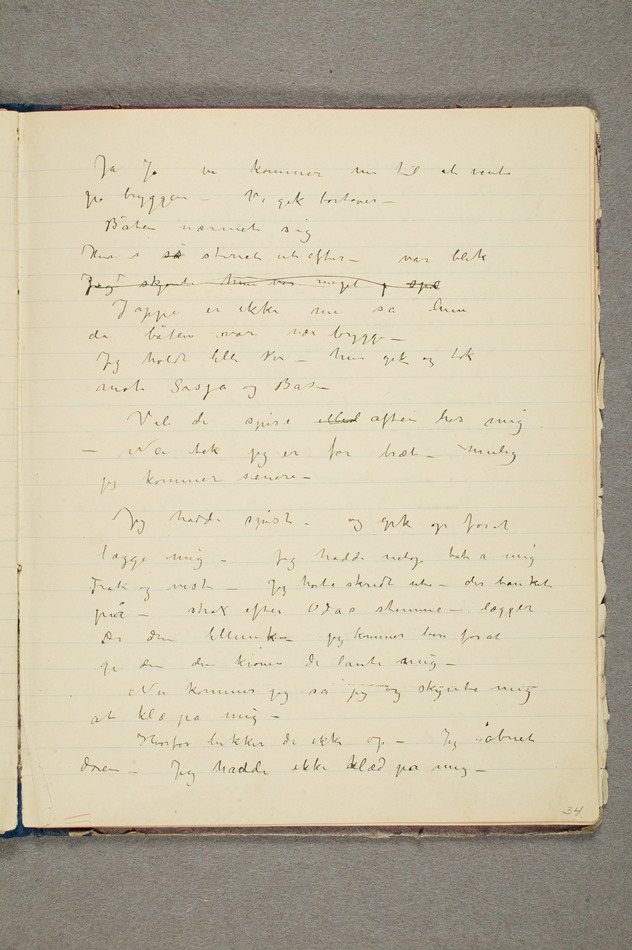 Ja Ja vi kommer nu til at vente
på bryggen – Vi gik bortover –
Båten nærmet sig
Hun s så stirret ut efter – var blek
Jeg skjønte hun var meget
Jappe er ikke me sa hun
da båten var nær brygge –
Jeg holdt lille Per – hun gik og tok
mot Sasja og Bas–
Vil de spise aften hos mig
– Nei tak jeg er for træt – mulig
jeg kommer senere –
Jeg hadde spist – og gik op forat
lægge mig – Jeg hadde netop tat a mig
Frak og vest – Jeg hørte skridt ute – der banket
på – strax efter Odas stemme – lægger
De dem jeg kommer bare forat
gi dem den de lante mig –
Nu kommer jeg sa jeg og skyndte mig
at klæ pa mig –
Hvorfor lukker de ikke op – Jeg åbnet
døren – Jeg hadde ikke klæd på mig –
34